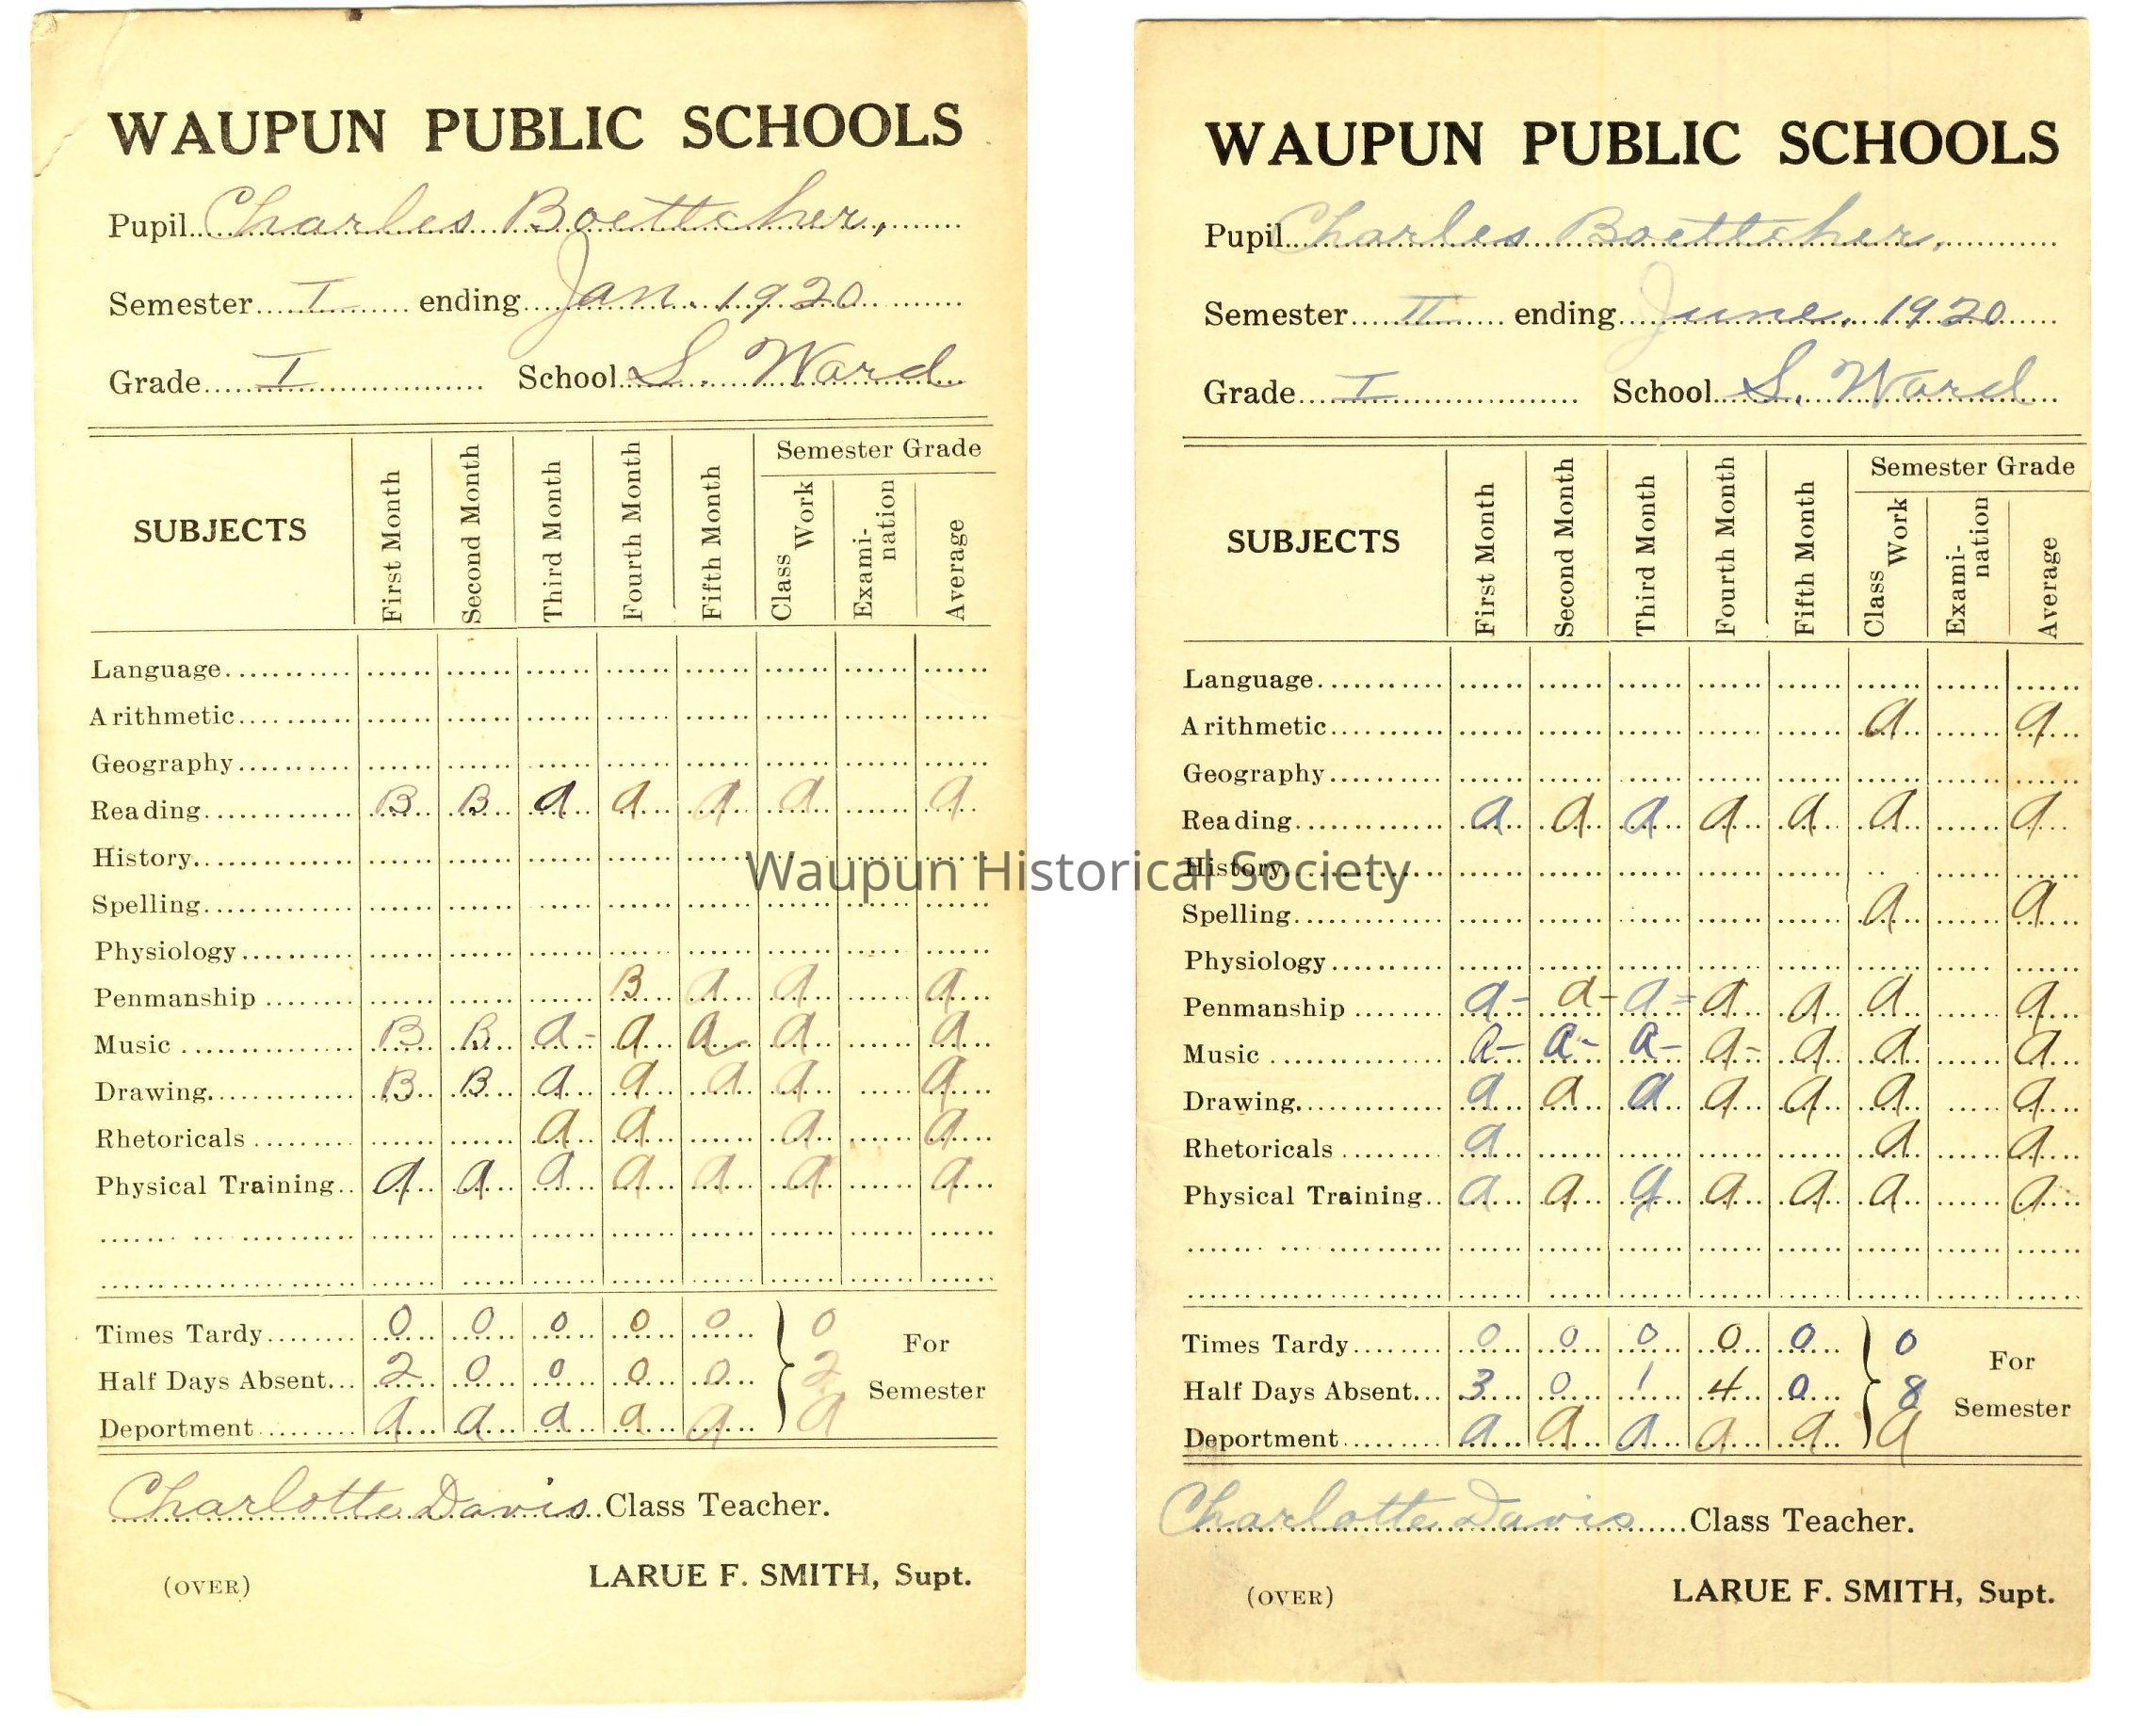 WAUPUN PUBLIC SCHOOLS
Pupil Charles Boettcher,
Semester I ending Jan. 1920
Grade I School S. Ward
SUBJECTS First Month Second Month Third Month Fourth Month Fifth Month Semester Grade Class Work Exami-nation Average
Language
Arithmetic
Geography
Reading B B a a a a a
History
Spelling
Physiology
Penmanship B a a a
Music B B a- a a a a
Drawing B B a a a a a
Rhetoricals a a a a
Physical Training a a a a a a a
Times Tardy 0 0 0 0 0 0 For
Half Days Absent 2 0 0 0 0 2 Semester
Deportment a a a a a a
Charlotte Davis Class Teacher.
(OVER) LARUE F. SMITH, Supt.
WAUPUN PUBLIC SCHOOLS
Pupil Charles Boettcher,
Semester II ending June, 1920
Grade I School S. Ward
SUBJECTS First Month Second Month Third Month Fourth Month Fifth Month Semester Grade Class Work Exami-nation Average
Language
Arithmetic a a
Geography
Reading a a a a a a a
History
Spelling a a
Physiology
Penmanship a- a- a= a a a a
Music a- a- a- a- a a a
Drawing a a a a a a a
Rhetoricals a a a
Physical Training a a a a a a a
Times Tardy 0 0 0 0 0 0 For
Half Days Absent 3 0 1 4 0 8 Semester
Deportment a a a a a a
Charlotte Davis Class Teacher.
(OVER) LARUE F. SMITH, Supt.
Waupun Historical Society